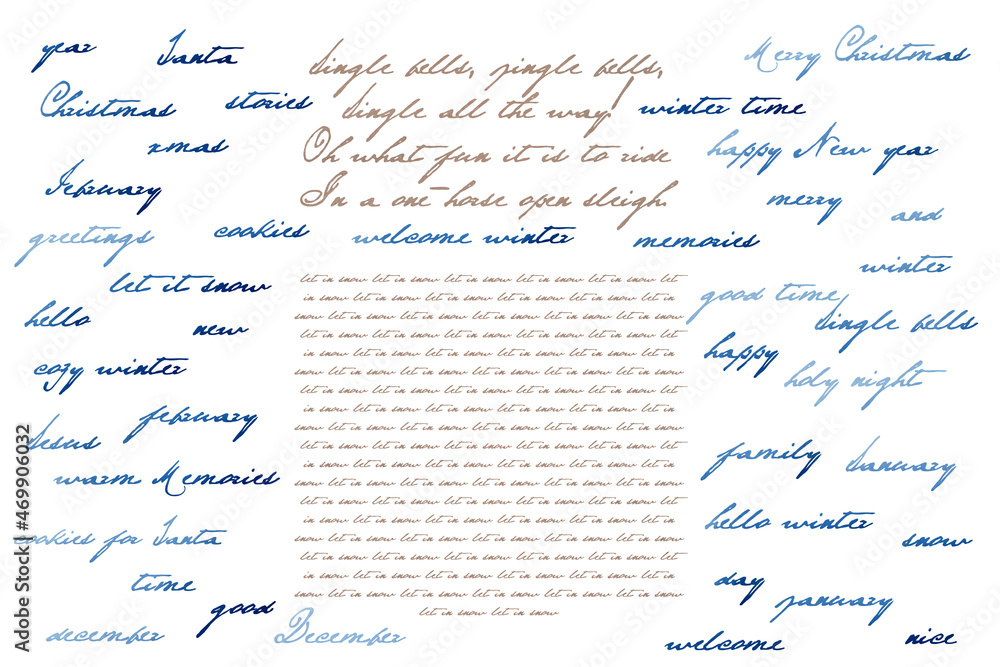 year
Santa
Jingle bells, jingle bells,
Merry Christmas
Christmas
stories
Jingle all the way!
winter time
xmas
Oh what fun it is to ride
happy New year
February
In a one-horse open sleigh.
merry
and
greetings
cookies
welcome winter
memories
winter
let it snow
let in snow let in snow let in snow let in snow let in snow let
in snow let in snow let in snow let in snow let in snow let in
snow let in snow let in snow let in snow let in snow let in snow
let in snow let in snow let in snow let in snow let in snow let
in snow let in snow let in snow let in snow let in snow let in
snow let in snow let in snow let in snow let in snow let in snow
let in snow let in snow let in snow let in snow let in snow let
in snow let in snow let in snow let in snow let in snow let in
snow let in snow let in snow let in snow let in snow let in snow
let in snow let in snow let in snow let in snow let in snow let
in snow let in snow let in snow let in snow let in snow let in
snow let in snow let in snow let in snow let in snow let in snow
let in snow let in snow let in snow let in snow let in snow let
in snow let in snow let in snow let in snow let in snow let in
snow let in snow let in snow let in snow let in snow let in snow
let in snow let in snow let in snow let in snow let in snow let
in snow let in snow let in snow let in snow let in snow let in
snow let in snow let in snow let in snow let in snow let in snow
let in snow let in snow
good time
hello
new
Jingle bells
happy
cozy winter
holy night
february
Jesus
family
January
warm Memories
hello winter
cookies for Santa
snow
time
day
january
good
december
December
welcome
nice
Adobe Stock | #469906032